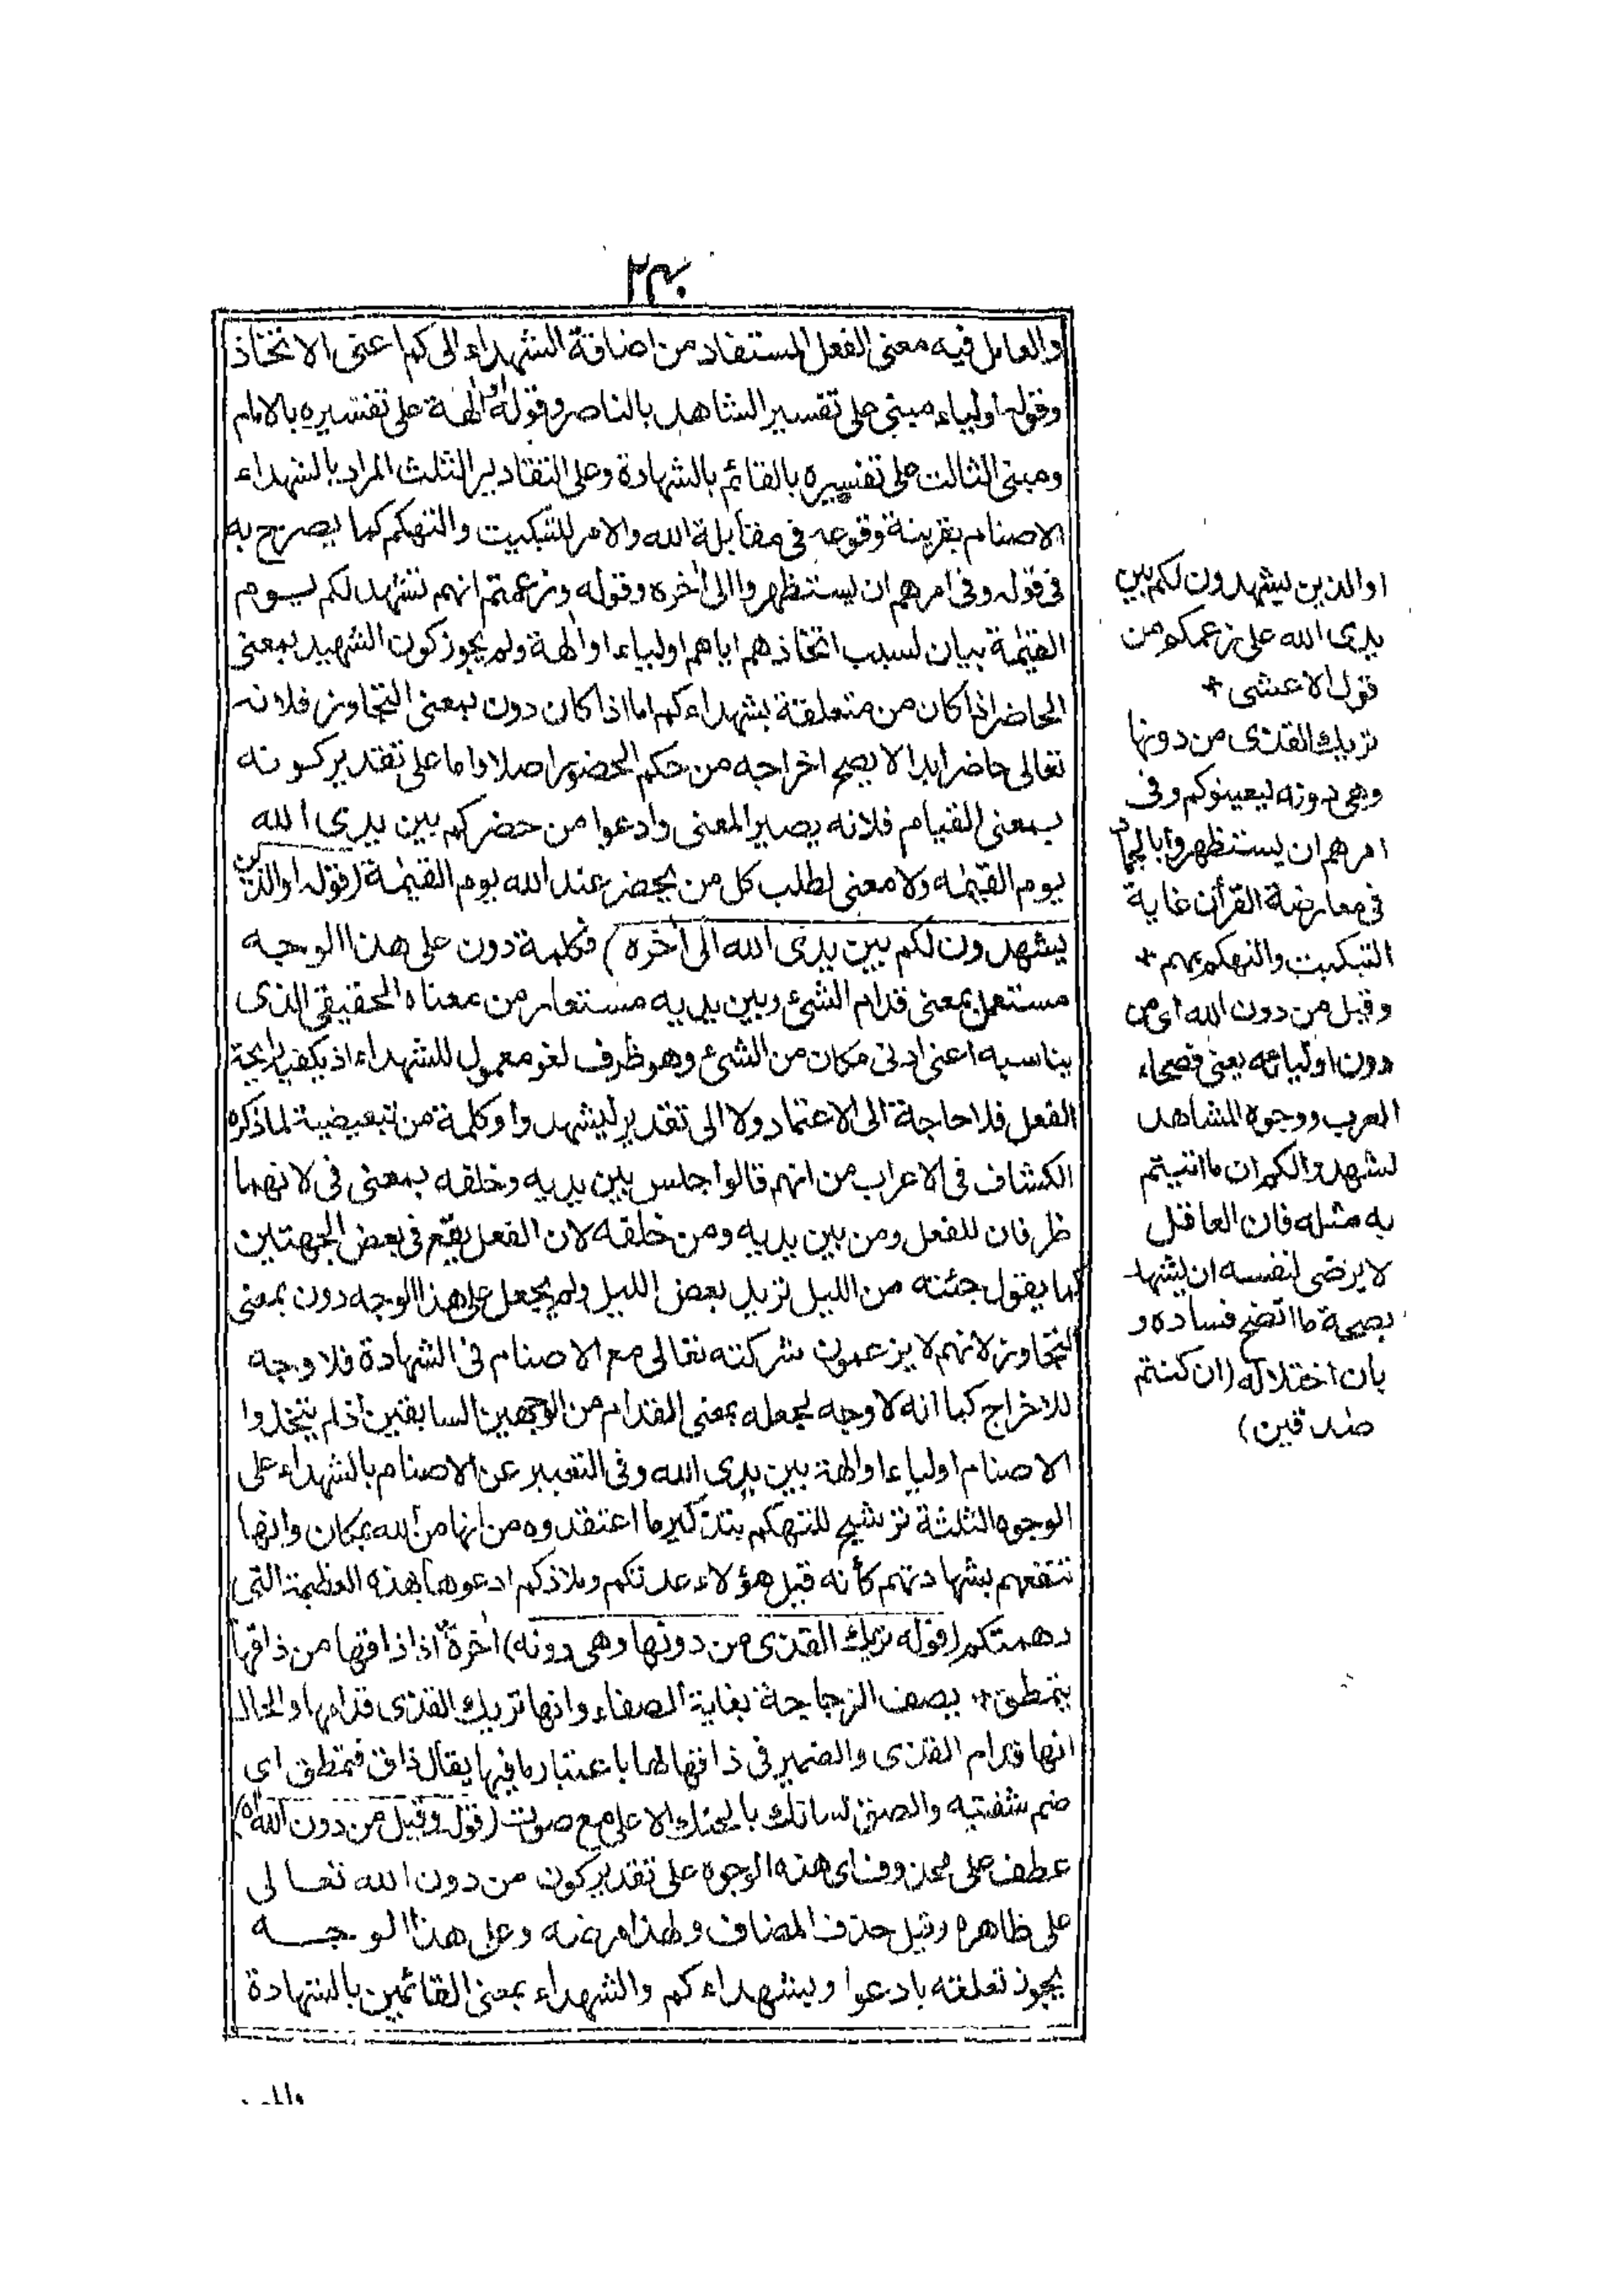 ٢٤٠
والعامل فيه معنى الفعل المستفاد من اضافة الشهداء الى كم اعنى الاتخاذ
وقوله اولياء مبنى على تفسير الشاهد بالناصر وقوله او الهة على تفسيره بالامام
ومبنى الثالث على تفسيره بالقائم بالشهادة وعلى التقادير الثلث المراد بالشهداء
الاصنام بقرينة وقوعه فى مقابلة الله والامر للتبكيت والتهكم كما يصرح به
فى قوله وفى امرهم ان يستظهروا الى أخره وقوله وزعمتم انهم تشهد لكم يوم
القيٰمة بيان لسبب اتخاذهم اياهم اولياء او الهة ولم يجوز كون الشهيد بمعنى
الحاضر اذا كان من متعلقة بشهداءكم اما اذا كان دون بمعنى التجاوز فلانه
تعالى حاضر ابدا لا يصح اخراجه من حكم الحضور اصلا واما على تقدير كونه
بمعنى القيام فلانه يصير المعنى وادعوا من حضركم بين يدى الله
يوم القيٰمه ولا معنى لطلب كل من يحضر عند الله يوم القيٰمة (قوله او الذين
يشهدون لكم بين يدى الله الى أخره) فكلمة دون على هذا الوجه
مستعمل بمعنى قدام الشئ وبين يديه مستعار من معناه الحقيقى الذى
يناسبه اعنى ادنى مكان من الشئ وهو ظرف لغو معمول للشهداء اذ يكفيه رايحة
الفعل فلا حاجة الى الاعتماد ولا الى تقدير ليشهدوا وكلمة من تبعيضية لما ذكره
الكشاف فى الاعراب من انهم قالوا جلس بين يديه وخلفه بمعنى فى لانهما
ظرفان للفعل ومن بين يديه ومن خلفه لان الفعل يقع فى بعض الجهتين
كما يقول جئته من الليل تريد بعض الليل ولم يجعل على هذا الوجه دون بمعنى
التجاوز لانهم لا يزعمون شركته تعالى مع الاصنام فى الشهادة فلا وجه
للاخراج كما انه لا وجه لجعله بمعنى القدام من الوجهين السابقين اذ لم يتخذوا
الاصنام اولياء او الهة بين يدى الله وفى التعبير عن الاصنام بالشهداء على
الوجوه الثلثة ترشيح للتهكم بتذكير ما اعتقدوه من انها من الله بمكان وانها
تنفعهم بشهادتهم كأنه قيل هؤلاء عدتكم وملاذكم ادعوها لهذه العظيمة التى
دهمتكم (قوله تريك القذى من دونها وهى دونه) اخرة اذا ذاقها من ذاقها
يتمطق + يصف الزجاجة بغاية الصفاء وانها تريك القذى قدامها والحال
انها قدام القذى والضمير فى ذاقها لها باعتبار ما فيها يقال ذاق فتمطق اى
ضم شفتيه والصق لسانك بالحنك الاعلى مع صوت (قوله وقيل من دون الله اه)
عطف على محذوف اى هذه الوجوه على تقدير كون من دون الله تعالى
على ظاهره وقيل حذف المضاف ولهذا مرضه وعلى هذا الوجه
يجوز تعلقه بادعوا وبشهداءكم والشهداء بمعنى القائمين بالشهادة
او الذين يشهدون لكم بين
يدى الله على زعمكم من
قول الاعشى +
تريك القذى من دونها
وهى دونه ليعينوكم وفى
امرهم ان يستظهروا بالجماد
فى معارضة القرأن غاية
التبكيت والتهكم بهم +
وقيل من دون الله اى من
دون اوليائه يعنى فصحاء
العرب ووجوه المشاهد
لشهدوا لكم ان ما اتيتم
به مثله فان العاقل
لا يرضى لنفسه ان يشهد
بصحة ما اتضح فساده و
بان اختلاله (ان كنتم
صٰدقين)